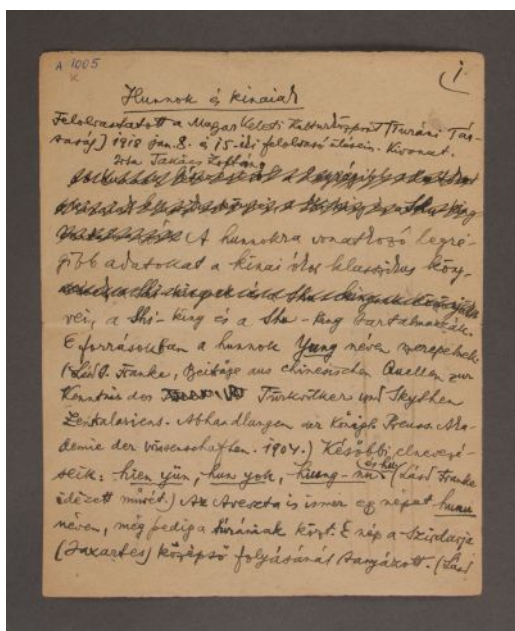 A 1005
K
1.
Hunnok és kinaiak
Felolvastatott a Magyar Keleti Kulturközpont (Turáni Tár-
saság) 1918 jan. 8. és 15.-iki felolvasó ülésein. Kivonat.
Irta Takács Zoltán
A hunnokra vonatkozó legré-
gibb adatokat a kinai ókor klasszikus köny-
vei, a Shi-king és a Shu-king tartalmazzák.
E forrásokban a hunnok Yung néven szerepelnek.
(Lásd. Franke, Beitäge aus chinesischen Quellen zur
Kenntnis der Türkvölker und Skythen
Zentralasiens. Abhandlungen der Königl. Preuss. Aka-
demie der Wissenschaften. 1904.) Későbbi elnevezé-
seik: hien yün, hun yok, hiung-nu és hu (Lásd Franke
idézett művét.) Az Avesta is ismer egy népet hunu
néven, még pedig a turániak közt. E nép a Szirdarja
(Jaxartes) középső folyásánál tanyázott. (Lásd